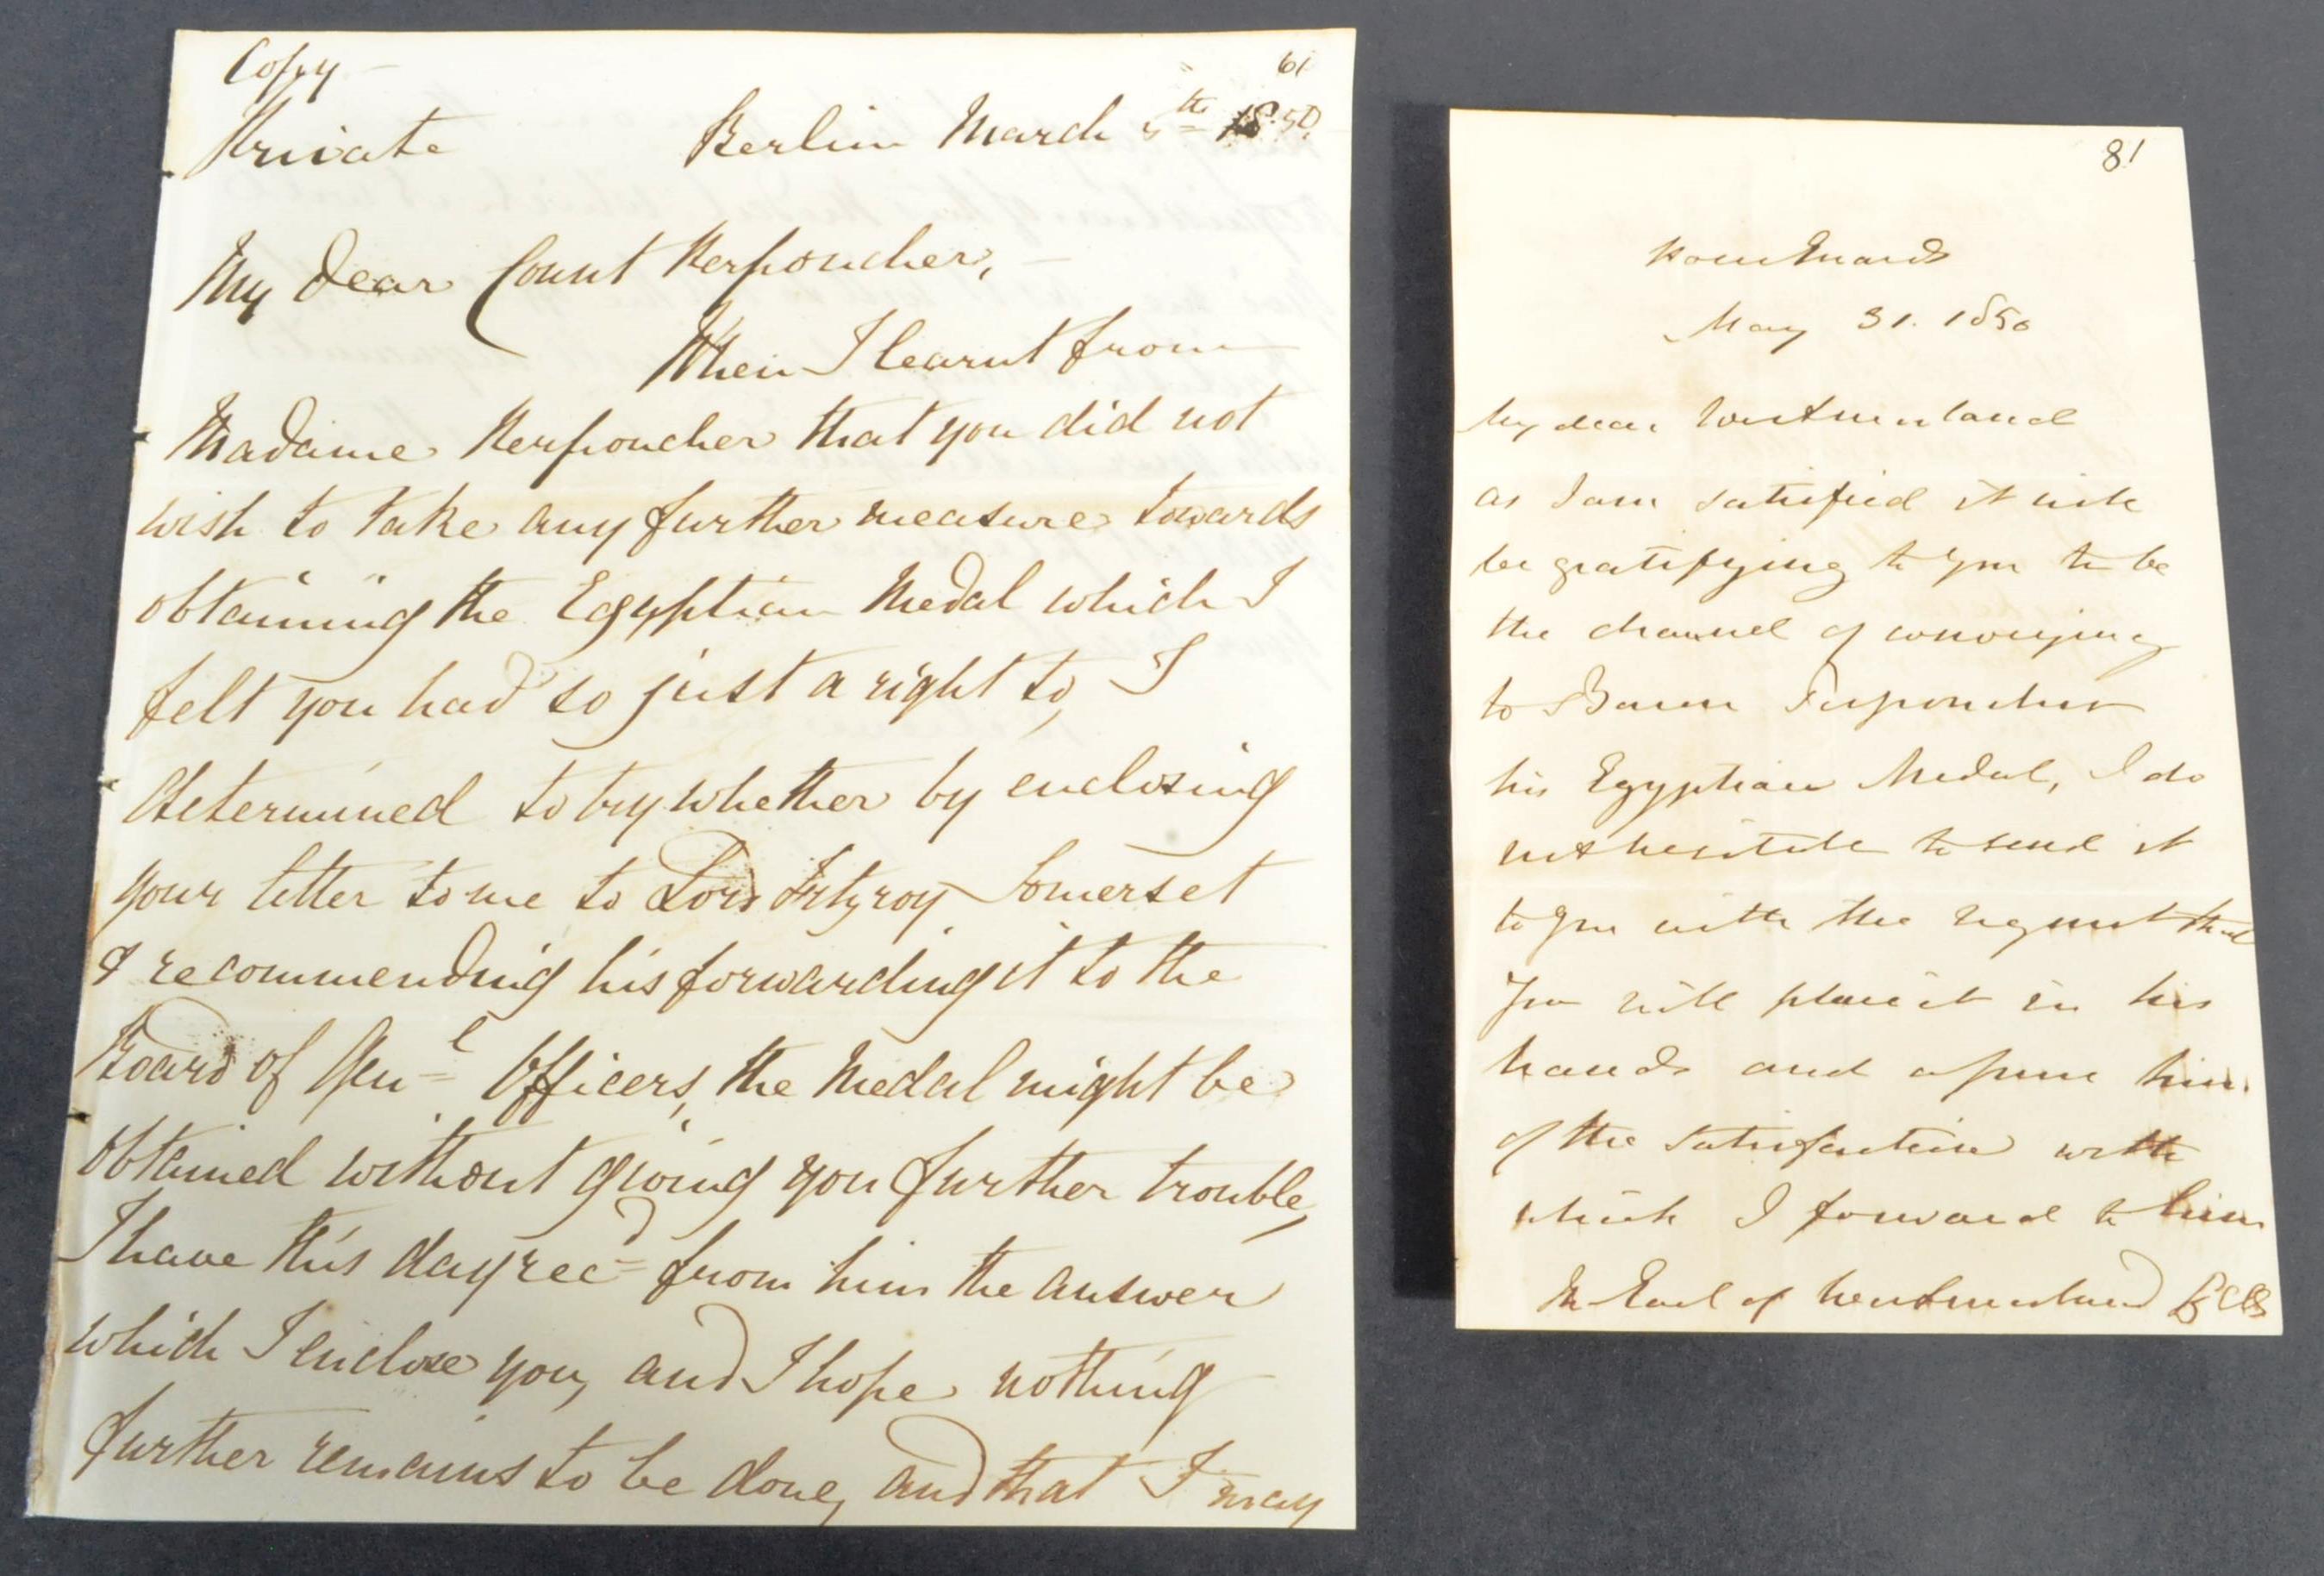 Copy
61
Private Berlin March 5th 1850.
My Dear Count Perponcher,
When I learnt from
Madame Perponcher that you did not
wish to take any further measure towards
obtaining the Egyptian Medal which I
felt you had so just a right to, I
determined to try whether by enclosing
your letter to me to Lord Fitzroy Somerset
& recommending his forwarding it to the
Board of Genl Officers, the Medal might be
obtained without giving you further trouble,
I have this day recd from him the answer
which I enclose you, and I hope nothing
further remains to be done, and that I may
81
Horse Guards
May 31. 1850
My dear Westmorland
as I am satisfied it will
be gratifying to you to be
the channel of conveying
to Baron Perponcher
his Egyptian Medal, I do
not hesitate to send it
to you with the request that
you will place it in his
hands and assure him
of the satisfaction with
which I forward to him
The Earl of Westmorland GCB